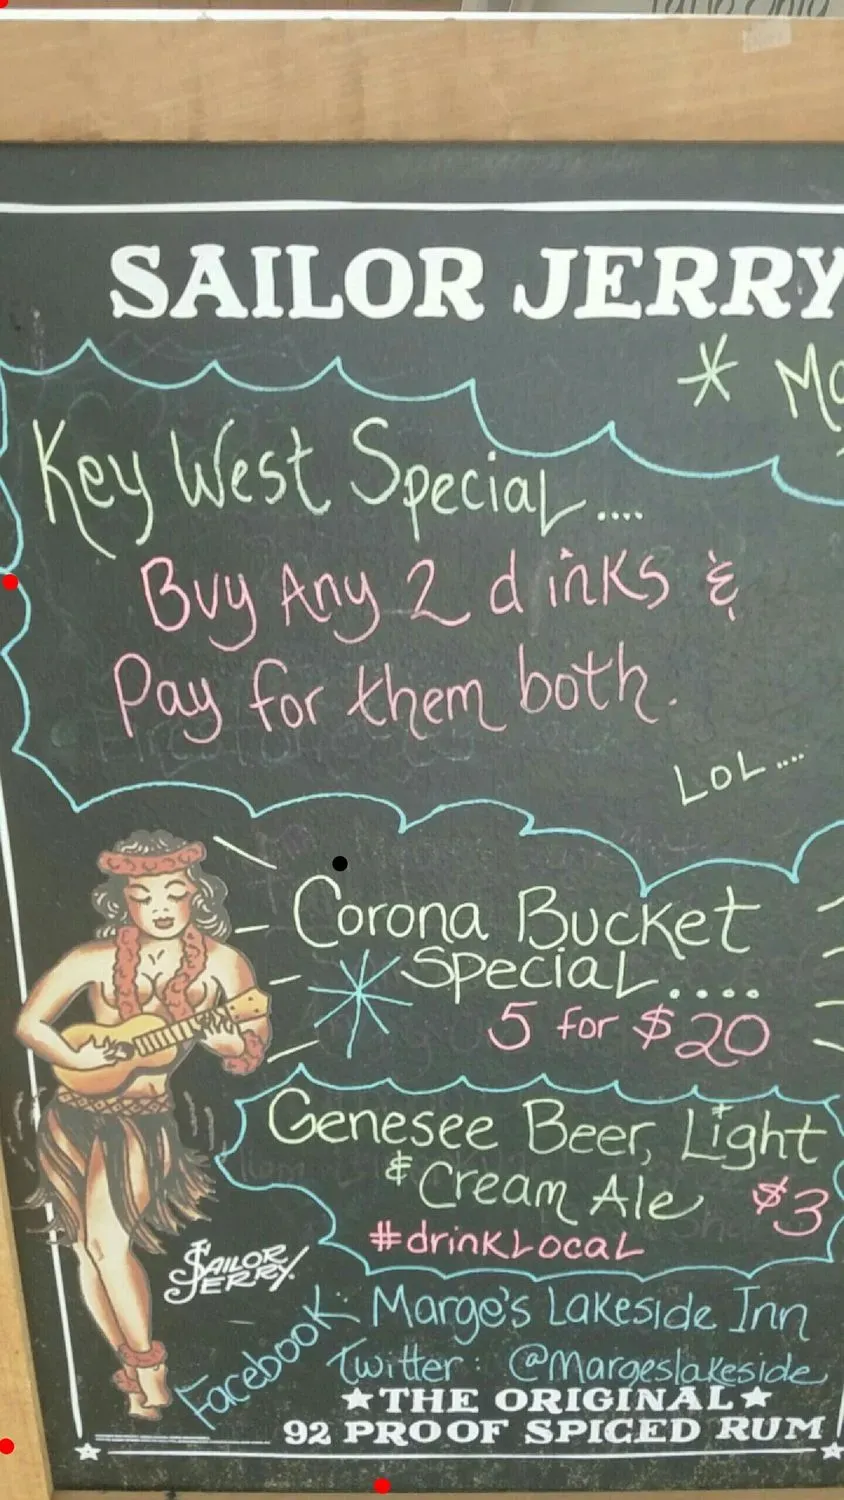 SAILOR JERRY
Key West Special....
Buy Any 2 d inks &
Pay for them both.
LOL....
Corona Bucket
Special....
5 for $20
Genesee Beer, Light
& Cream Ale $3
#drinkLocal
SAILOR
JERRY
Facebook: Marge's Lakeside Inn
Twitter: @Margeslakeside
★THE ORIGINAL★
92 PROOF SPICED RUM